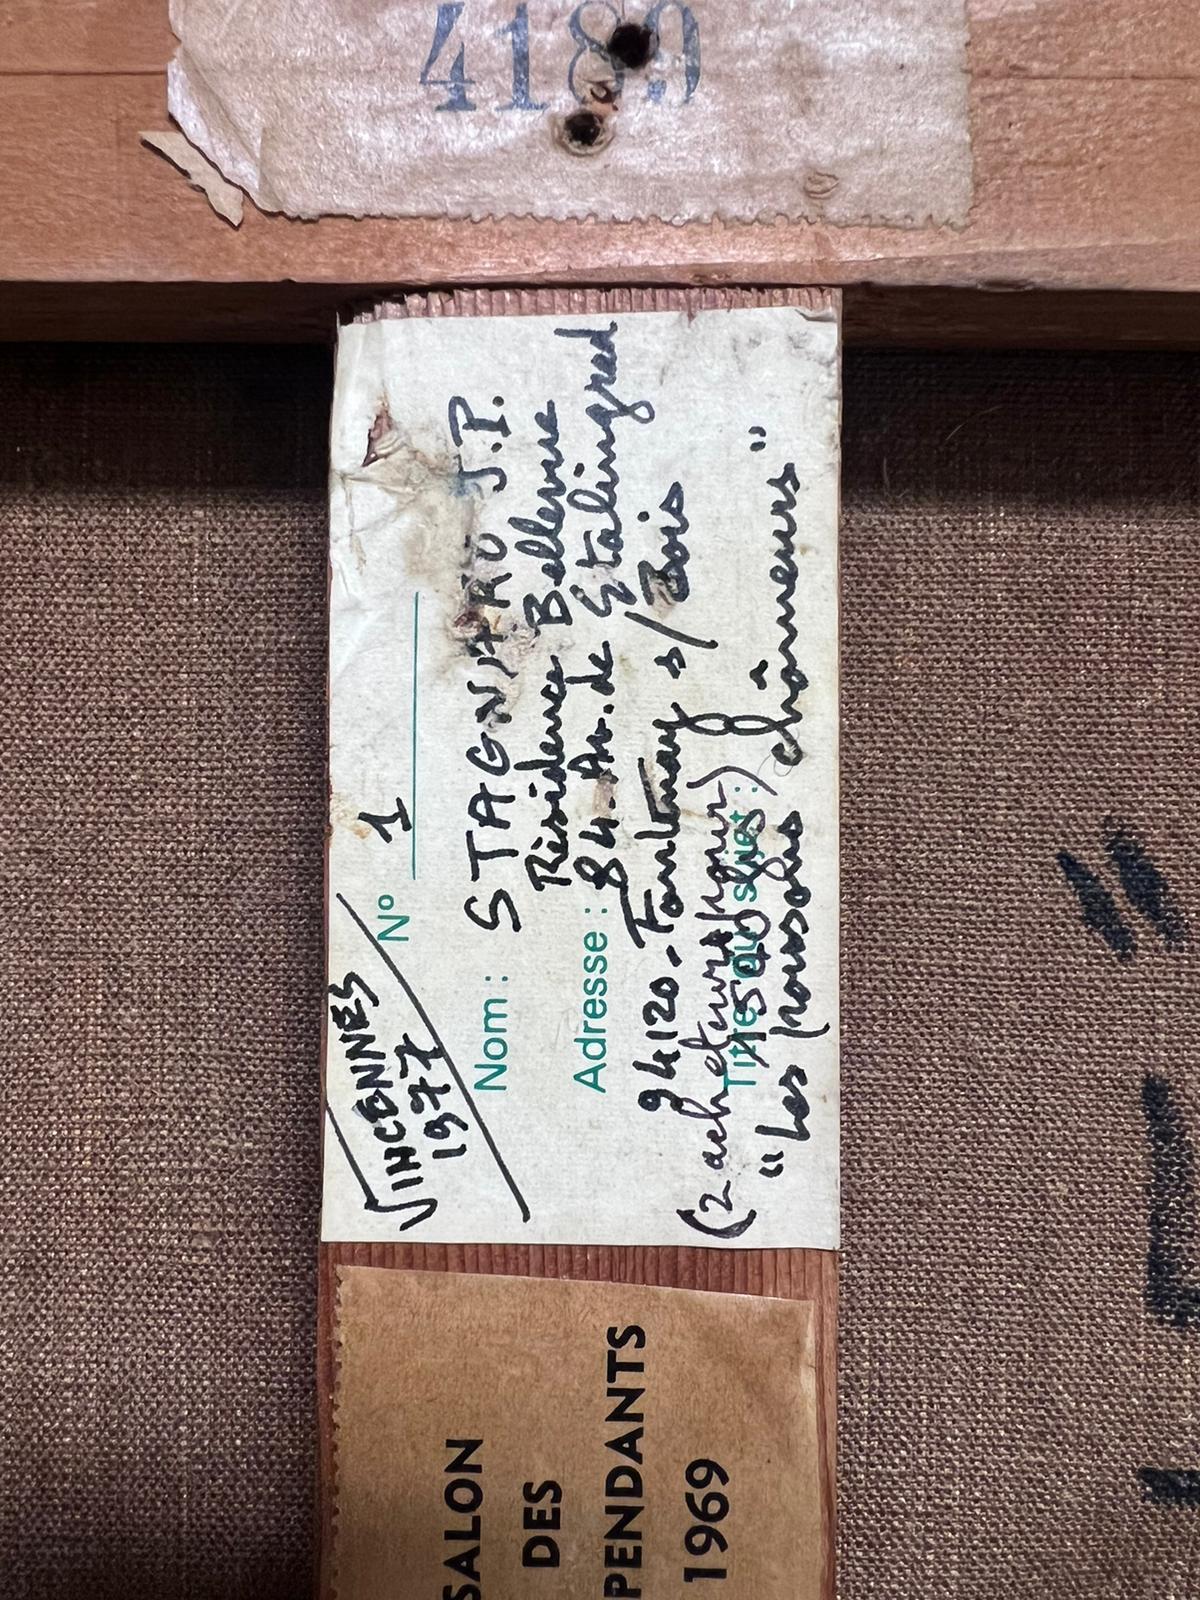 4189
VINCENNES
1977
N° 1
Nom : STAGNARO J.P.
Résidence Bellevue
Adresse : 84. Av. de Stalingrad
94120 - Fontenay s/ Bois
(2 acheteurs pour)
Titre du sujet :
"Les poursoles chômeurs"
SALON
DES
PENDANTS
1969